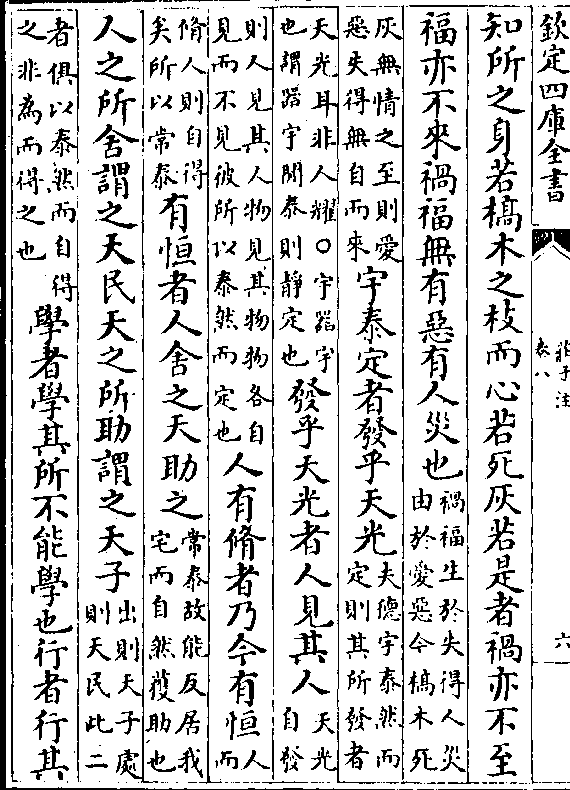 欽定四庫全書
莊子注
卷八
六
知所之身若槁木之枝而心若死灰若是者禍亦不至
福亦不來禍福無有惡有人災也禍福生於失得人災由於愛惡今槁木死
灰無情之至則愛惡失得無自而來宇泰定者發乎天光夫德宇泰然而定則其所發者
天光耳非人耀○宇器宇也謂器宇閒泰則靜定也發乎天光者人見其人天光自發
則人見其人物見其物物各自見而不見彼所以泰然而定也人有脩者乃今有恒人而
脩人則自得矣所以常泰有恒者人舍之天助之常泰故能反居我宅而自然獲助也
人之所舍謂之天民天之所助謂之天子出則天子處則天民此二
者俱以泰然而自得之非為而得之也學者學其所不能學也行者行其